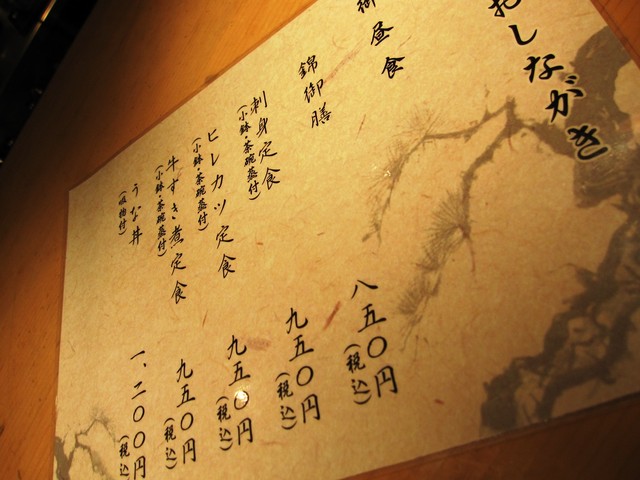 おしながき
御昼食
錦御膳
八五〇円
(税込)
刺身定食
(小鉢・茶碗蒸付)
九五〇円
(税込)
ヒレカツ定食
(小鉢・茶碗蒸付)
九五〇円
(税込)
牛すき煮定食
(小鉢・茶碗蒸付)
九五〇円
(税込)
うな丼
(吸物付)
一、二〇〇円
(税込)